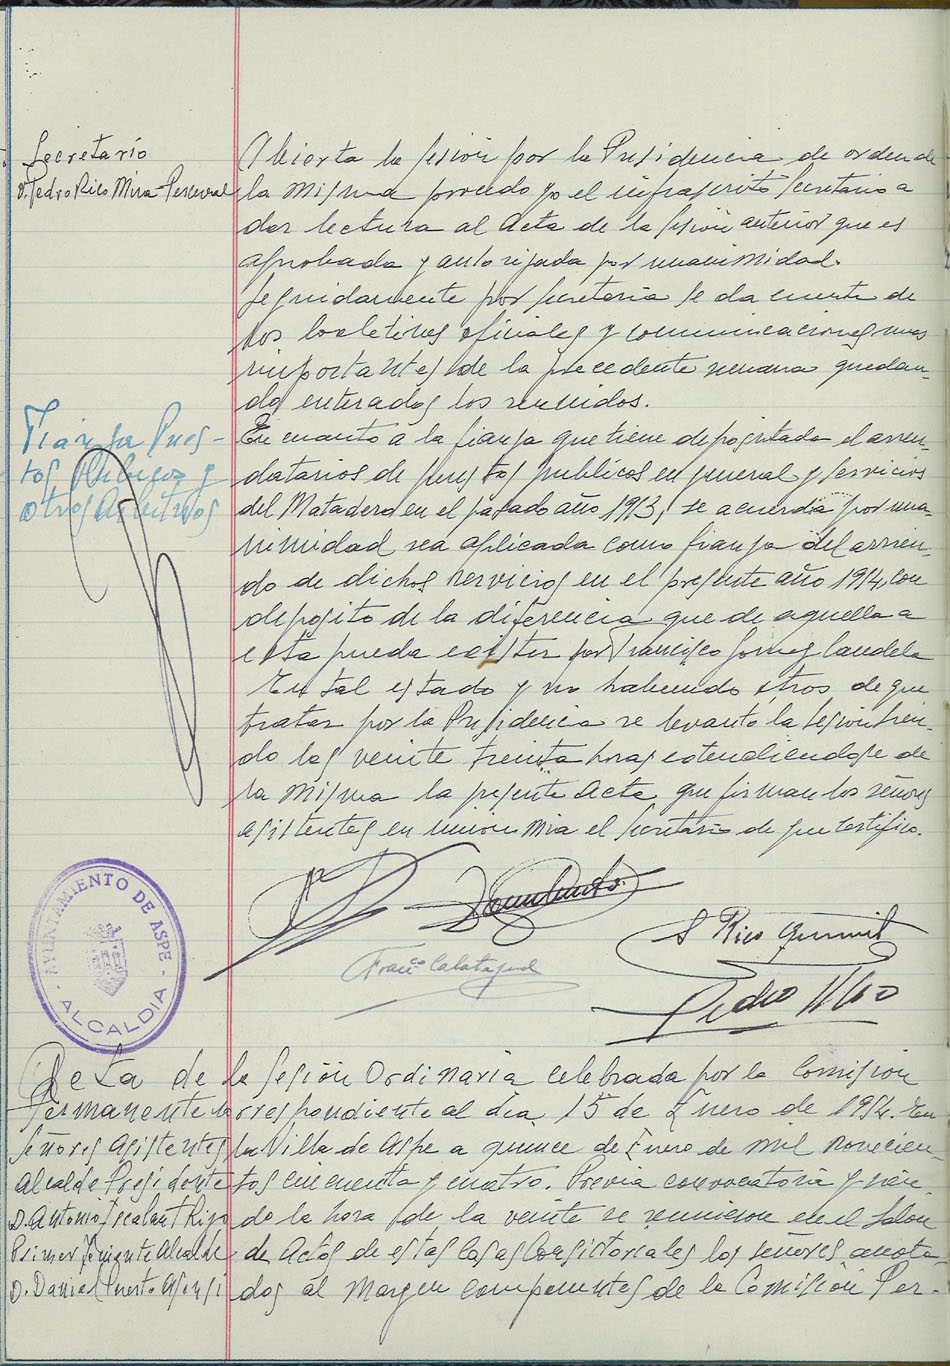 Secretario
D. Pedro Rico Mira-Perceval
Abierta la sesión por la Presidencia de orden de
la misma procedo yo el infrascrito Secretario a
dar lectura al acta de la sesión anterior que es
aprobada y autorizada por unanimidad.
Seguidamente por secretaria se da cuenta de
los boletines oficiales y comunicaciones mas
importantes de la precedente semana quedan-
do enterados los reunidos.
Fianza Pues-
tos Publicos y
otros Arbitrios
En cuanto a la fianza que tiene depositada el arren-
datarios de puestos publicos en general y servicios
del Matadero en el pasado año 1953, se acuerda por una-
nimidad sea aplicada como fianza del arrien-
do de dichos servicios en el presente año 1954, con
deposito de la diferencia que de aquella a
esta pueda existir por Francisco Gomez Candela
En tal estado y no habiendo otros de que
tratar por la Presidencia se levanto la sesion sien-
do las veinte treinta horas extendiendose de
la misma la presente acta que firman los señores
asistentes en union mia el Secretario de que certifico.
Franco Calatayud
Pedro Rico
AYUNTAMIENTO DE ASPE
ALCALDIA
Acta de la Sesión Ordinaria celebrada por la Comision
Permanente correspondiente al dia 15 de Enero de 1954. En
Señores asistentes
Alcalde Presidente
D. Antonio
Primer Teniente Alcalde
D. Daniel Puerto Asensi
la Villa de Aspe a quince de Enero de mil novecien-
tos cincuenta y cuatro. Previa convocatoria y sien-
do la hora de la veinte se reunieron en el Salon
de Actos de estas Casas Consistoriales los señores anota-
dos al margen componentes de la Comisión Per-